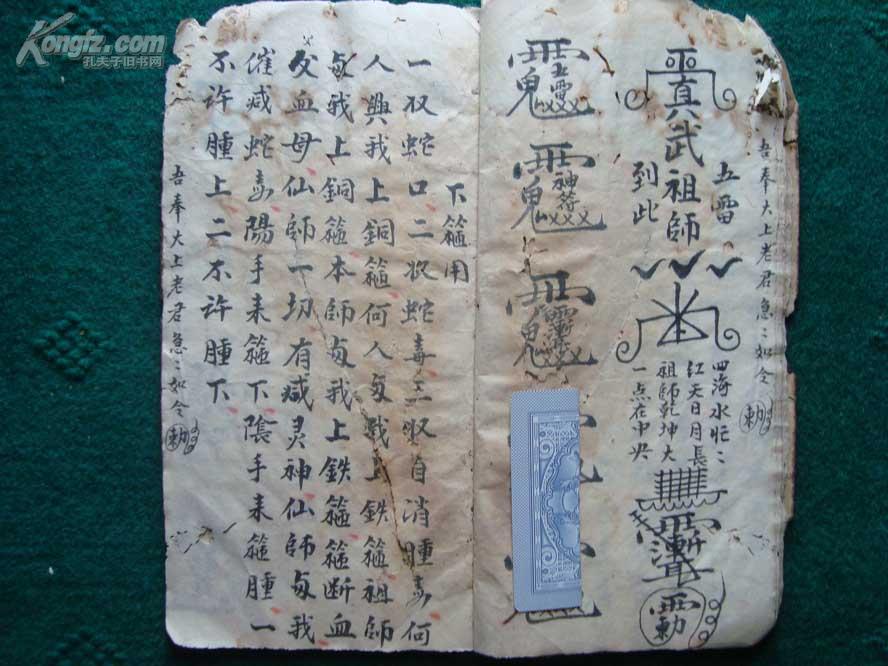 Kongfz.com
孔夫子旧书网
吾奉大上老君急〻如令 勅
五雷
真武祖師
到此
四海水忙〻
红天日月長
祖師乾坤大
一点在中央
勅
神符
下箍用
一収蛇口二收蛇毒三収自消腫毒何
人與我上銅箍何人与我上鉄箍祖師
与我上銅箍本師与我上鉄箍箍断血
父血母仙師一切有感灵神仙師与我
催减蛇毒陽手来箍下陰手来箍腫一
不许腫上二不许腫下
吾奉大上老君急〻如令 勅